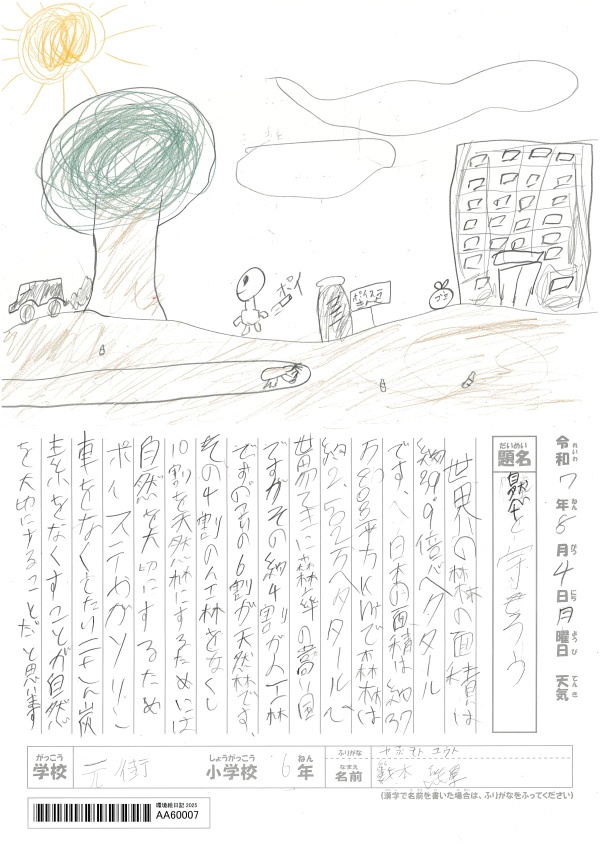 ポイ
ポイステ
禁止
ゴミ
令和7年8月4日月曜日 天気
れいわ ねん がつ にち ようび てんき
だいめい
題名
自然を守ろう
世界の森林の面積は
約39.9億ヘクタール
です、日本の面積は約37
万8000平方kmで森林は
約2,502万ヘクタールで
世界的に森林率の高い国
ですがその約4割が人工林
です。のこりの6割が天然林です、
その4割の人工林をなくし
10割を天然林にするためには
自然を大切にするため
ポイステやガソリン
車をなくしたり二さん炭
素をなくすことが自然
を大切にすることだと思います
がっこう
学校
元街
しょうがっこう
小学校
6
ねん
年
ふりがな
ユウト
なまえ
名前
(漢字で名前を書いた場合は、ふりがなをふってください)
環境絵日記 2025
AA60007